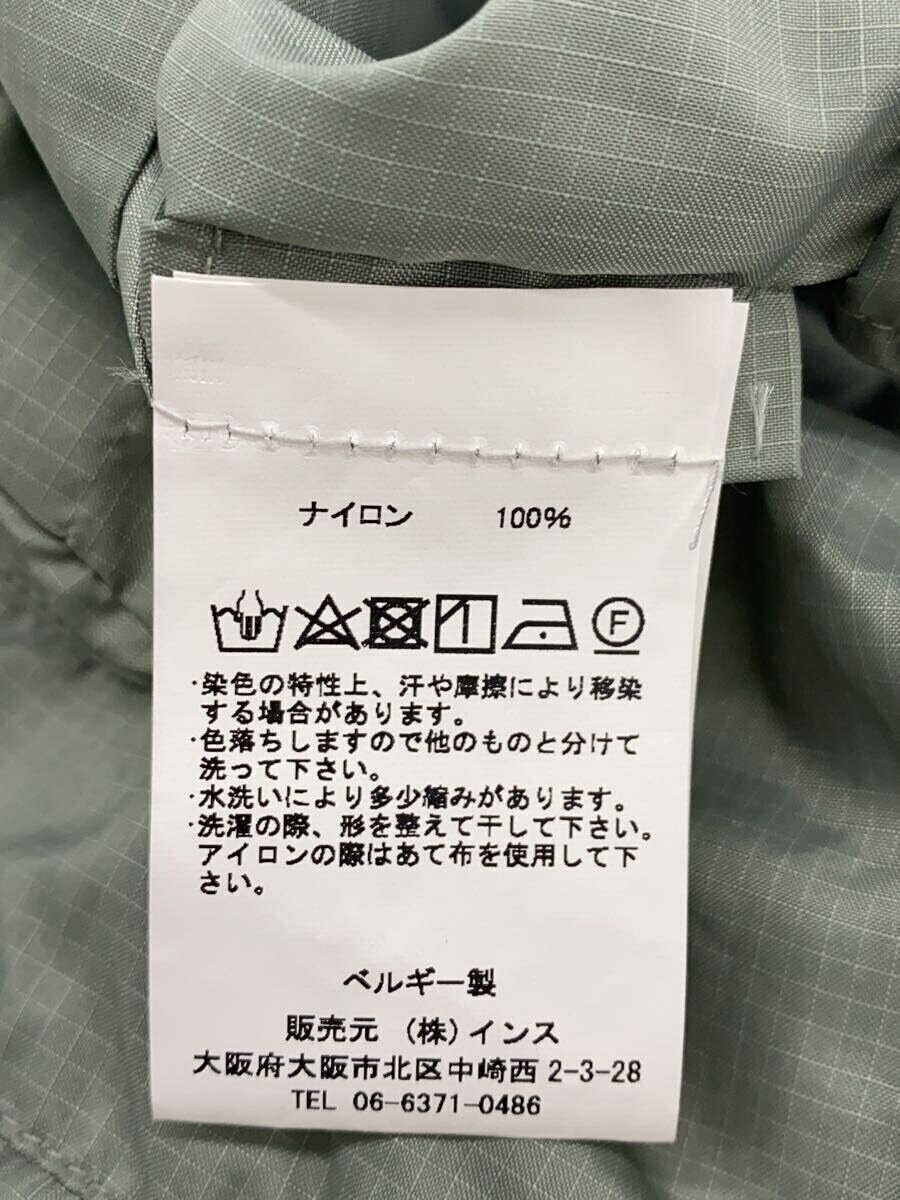 ナイロン 100%
F
・染色の特性上、汗や摩擦により移染
する場合があります。
・色落ちしますので他のものと分けて
洗って下さい。
・水洗いにより多少縮みがあります。
・洗濯の際、形を整えて干して下さい。
アイロンの際はあて布を使用して下
さい。
ベルギー製
販売元 (株)インス
大阪府大阪市北区中崎西2-3-28
TEL 06-6371-0486